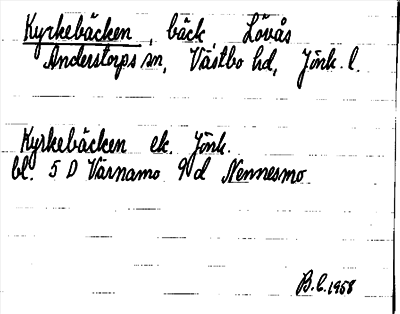 Kyrkebäcken, bäck, Lövås,
Anderstorps sn, Västbo hd, Jönk. l.
Kyrkebäcken ek. Jönk.
bl. 5 D Värnamo 9 d Nennesmo
B.C. 1958